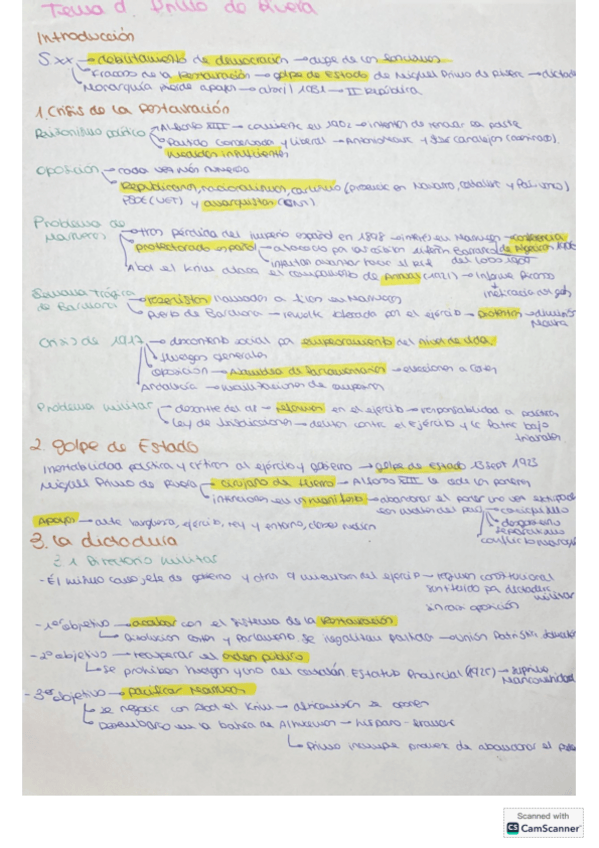 Tema 9. Primo de Rivera
Introducción
S.XX → debilitamiento de democracia → auge de los
Fracaso de la Restauración → golpe de Estado de Miguel Primo de Rivera →
Monarquía pierde apoyos → abril 1931 → II República
1. Crisis de la Restauración
político → Alfonso XIII → en 1902 → intentos de renovar
Partido Conservador y liberal → Antonio Maura y José Canalejas (asesinado)
medidas insuficientes
Oposición → cada vez más
Republicanos, nacionalismos, carlismo (presencia en Navarra, y País Vasco)
PSOE (UGT) y anarquistas (CNT)
Problema de
Marruecos → tras pérdida del imperio español en 1898 → interés en Marruecos → conferencia
protectorado español → Barranco de Algeciras 1906
intentar avanzar hacia el Rif del Lobo 1909
Abd el Krim ataca el campamento de Annual (1921) → Informe Picasso
Semana Trágica
de Barcelona → reservistas llamados a filas en Marruecos
puerto de Barcelona → revuelta por el ejército → protestas →
Maura
Crisis de 1917 → descontento social por empeoramiento del nivel de vida.
Huelgas generales
oposición → Asamblea de Parlamentarios → elecciones a Cortes
Andalucía → movilizaciones de campesinos
Problema militar → desastre del 98 → reformas en el ejército → responsabilidad a políticos
Ley de Jurisdicciones → delitos contra el ejército y la patria bajo
tribunales
2. Golpe de Estado
Inestabilidad política y críticas al ejército y gobierno → golpe de estado 13 sept 1923
Miguel Primo de Rivera → cirujano de hierro → Alfonso XIII le cede los poderes
intenciones en un manifiesto → abandonar el poder una vez
los males del país → caciquismo
desgobierno
separatismo
conflicto Marruecos
Apoyos → alta burguesía, ejército, rey y entorno, clases medias
3. La dictadura
3.1 Directorio militar
- Él mismo como jefe de gobierno y otros 9 miembros del ejército → régimen constitucional
sustituido por dictadura
militar
sin oposición
- 1er objetivo → acabar con el sistema de la Restauración
Disolución Cortes y Parlamento. Se ilegalizan partidos → Unión Patriótica
- 2º objetivo → recuperar el orden público
Se prohíben huelgas y uso del catalán Estatuto Provincial (1925) → suprime
Mancomunidad
- 3er objetivo → pacificar Marruecos
Se negocia con Abd el Krim →
Desembarco en la bahía de Alhucemas → hispano-francés
Primo incumple promesa de abandonar el
Scanned with
CS CamScanner